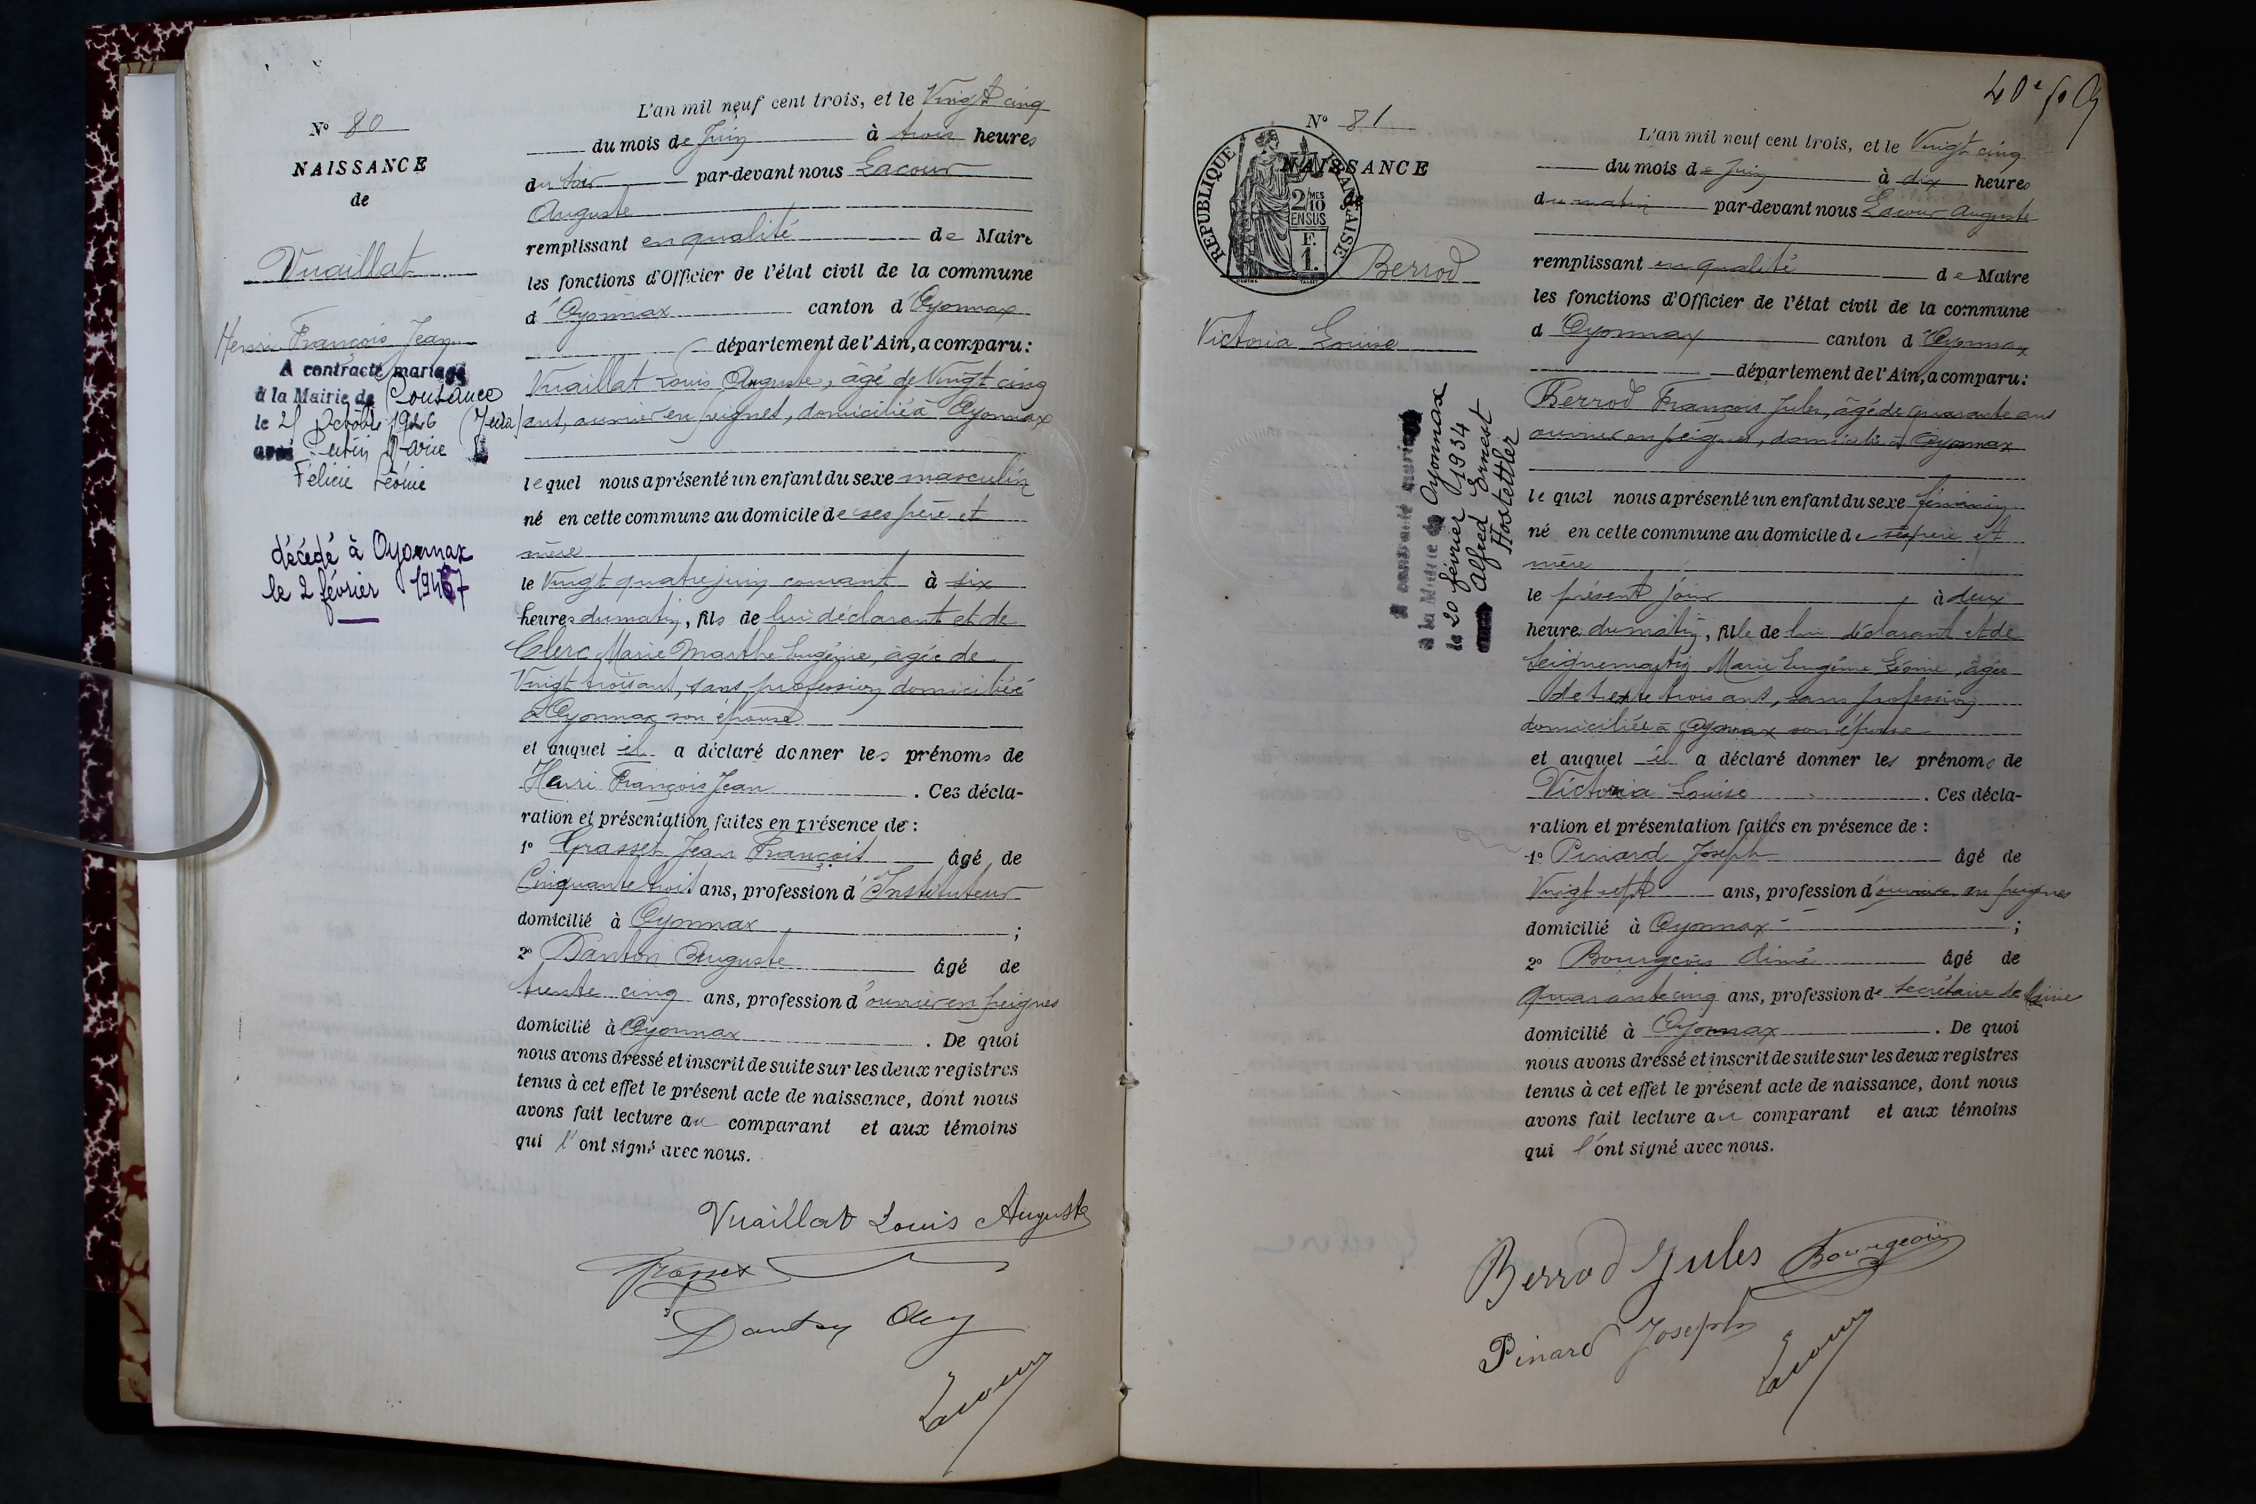 N° 80
NAISSANCE
de
Vuaillat
Henri François Jean
A contracté mariage
à la Mairie de Cousance
le 21 Octobre 1926 (Jura)
avec Marie
Félicie Léonie
décédé à Oyonnax
le 2 février 1967
L'an mil neuf cent trois, et le Vingt cinq
du mois de Juin à trois heures
du soir par-devant nous Lacour
Auguste
remplissant en qualité de Maire
les fonctions d'Officier de l'état civil de la commune
d'Oyonnax canton d'Oyonnax
département de l'Ain, a comparu :
Vuaillat Louis Auguste, âgé de Vingt cinq
ans, ouvrier en peignes, domicilié à Oyonnax
lequel nous a présenté un enfant du sexe masculin
né en cette commune au domicile de ses père et
mère
le Vingt quatre juin courant à six
heures du matin, fils de lui déclarant et de
Clerc Marie Marthe Eugénie, âgée de
Vingt trois ans, sans profession, domiciliée
à Oyonnax son épouse
et auquel il a déclaré donner les prénoms de
Henri François Jean . Ces décla-
ration et présentation faites en présence de :
1° Grasset Jean François âgé de
Cinquante trois ans, profession d'Instituteur
domicilié à Oyonnax ;
2° Danton Auguste âgé de
trente cinq ans, profession d'ouvrier en peignes
domicilié à Oyonnax . De quoi
nous avons dressé et inscrit de suite sur les deux registres
tenus à cet effet le présent acte de naissance, dont nous
avons fait lecture au comparant et aux témoins
qui l'ont signé avec nous.
Vuaillat Louis Auguste
Grasset
Danton Aug
Lacour
40e fo
N° 81
NAISSANCE
de
REPUBLIQUE FRANÇAISE
2/10 MES
EN SUS
F.
1.
Berrod
Victoria Louise
A contracté mariage
à la Mairie de Oyonnax
le 20 février 1934
avec Alfred Ernest
Hostettler
L'an mil neuf cent trois, et le Vingt cinq
du mois de Juin à dix heures
du matin par-devant nous Lacour Auguste
remplissant en qualité de Maire
les fonctions d'Officier de l'état civil de la commune
d'Oyonnax canton d'Oyonnax
département de l'Ain, a comparu :
Berrod François Jules, âgé de quarante ans
ouvrier en peignes, domicilié à Oyonnax
lequel nous a présenté un enfant du sexe féminin
né en cette commune au domicile de ses père et
mère
le présent jour à deux
heures du matin, fille de lui déclarant et de
Seignemartin Marie Eugénie Léonie, âgée
de trente trois ans, sans profession
domiciliée à Oyonnax son épouse
et auquel il a déclaré donner les prénoms de
Victoria Louise . Ces décla-
ration et présentation faites en présence de :
1° Pinard Joseph âgé de
Vingt sept ans, profession d'ouvrier en peignes
domicilié à Oyonnax ;
2° Bourgeois Aimé âgé de
quarante cinq ans, profession de Secrétaire de Mairie
domicilié à Oyonnax . De quoi
nous avons dressé et inscrit de suite sur les deux registres
tenus à cet effet le présent acte de naissance, dont nous
avons fait lecture au comparant et aux témoins
qui l'ont signé avec nous.
Berrod Jules Bourgeois
Pinard Joseph
Lacour